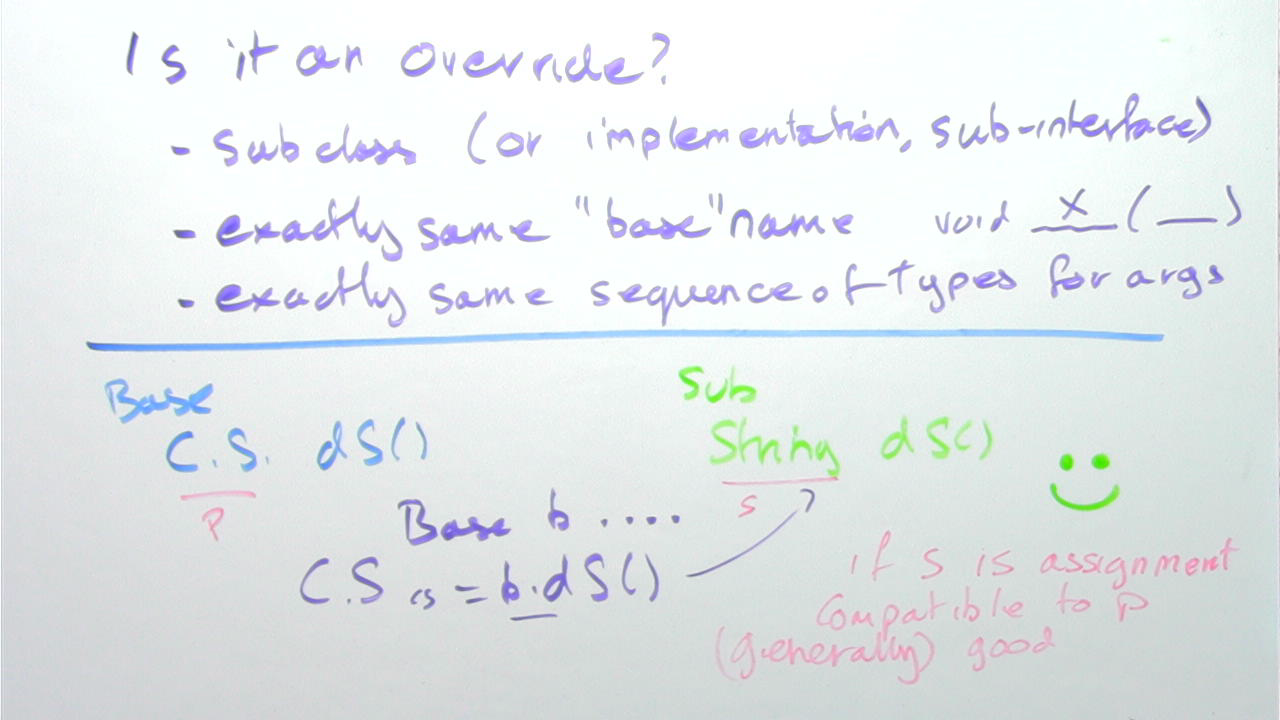 Is it an override?
- subclass (or implementation, sub-interface)
- exactly same "base" name void x (__)
- exactly same sequence of types for args
Base
Sub
C.S. dS()
String dS()
P
S
Base b ....
C.S cs = b.dS()
if S is assignment
compatible to P
(generally) good